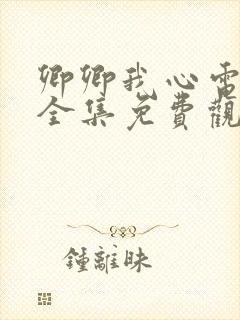 卿卿我心電
全集免費觀
鍾離昧